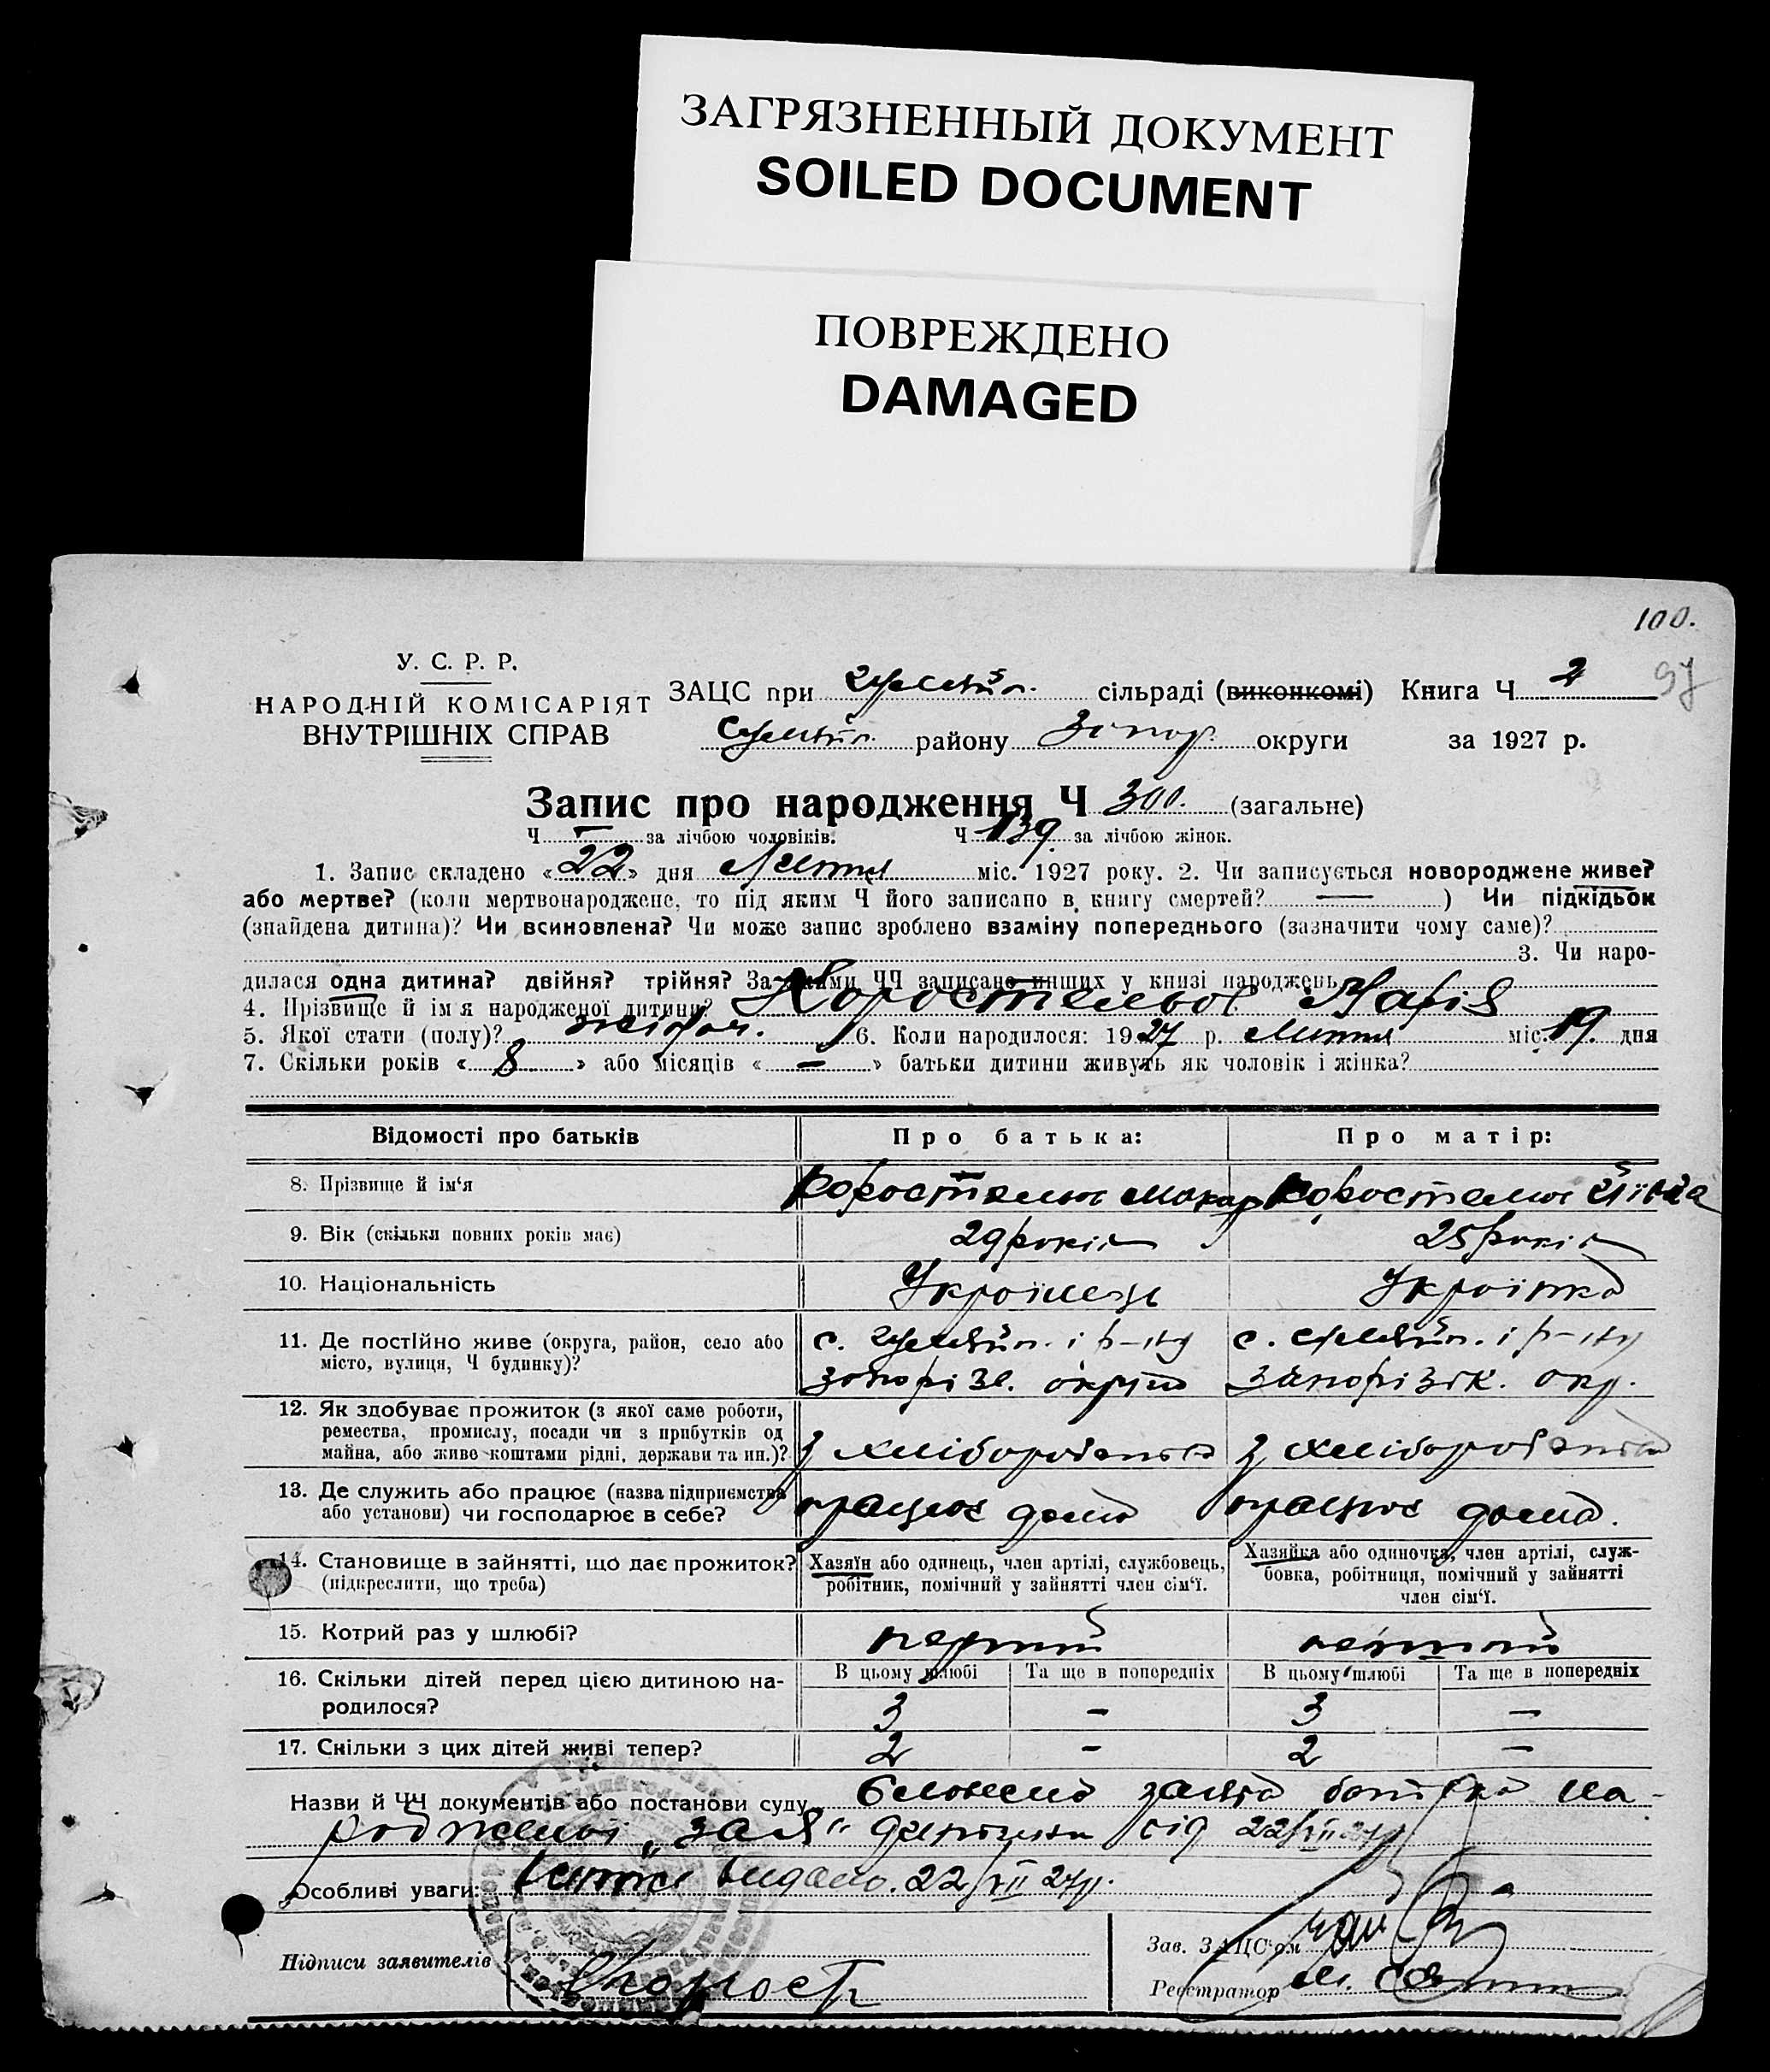 ЗАГРЯЗНЕННЫЙ ДОКУМЕНТ
SOILED DOCUMENT
ПОВРЕЖДЕНО
DAMAGED
100.
97
У. С. Р. Р.
НАРОДНІЙ КОМІСАРІЯТ
ВНУТРІШНІХ СПРАВ
ЗАЦС при сільраді (виконкомі) Книга Ч 2
району Запор. округи за 1927 р.
Запис про народження Ч 300. (загальне)
Ч — за лічбою чоловіків. Ч 139. за лічбою жінок.
1. Запис складено «22» дня Липня міс. 1927 року. 2. Чи записується новороджене живе?
або мертве? (коли мертвонароджене, то під яким Ч його записано в книгу смертей? — ) Чи підкідьок
(знайдена дитина)? Чи всиновлена? Чи може запис зроблено взаміну попереднього (зазначити чому саме)?
3. Чи наро-
дилася одна дитина? двійня? трійня? За якими ЧЧ записано инших у книзі народжень
4. Прізвище й ім я народженої дитини? Коростельова Марія
5. Якої стати (полу)? жіноч. 6. Коли народилося: 1927 р. Липня міс. 19. дня
7. Скільки років «8» або місяців «—» батьки дитини живуть як чоловік і жінка?
Відомості про батьків Про батька: Про матір:
8. Прізвище й ім‘я Макар
9. Вік (скільки повних років має) 29 років 25 років
10. Національність Українець Українка
11. Де постійно живе (округа, район, село або
місто, вулиця, Ч будинку)?
с. і р-ну с. і р-ну
Запорізьк. округи Запорізьк. окр.
12. Як здобуває прожиток (з якої саме роботи,
ремества, промислу, посади чи з прибутків од
майна, або живе коштами рідні, держави та ин.)?
з хліборобства з хліборобства
13. Де служить або працює (назва підприємства
або установи) чи господарює в себе?
працює дома працює дома.
14. Становище в зайнятті, що дає прожиток?
(підкреслити, що треба)
Хазяїн або одинець, член артілі, службовець,
робітник, помічний у зайнятті член сім‘ї.
Хазяйка або одиночка, член артілі, служ-
бовка, робітниця, помічний у зайнятті
член сім‘ї.
15. Котрий раз у шлюбі? перший перший
16. Скільки дітей перед цією дитиною на-
родилося?
В цьому шлюбі Та ще в попередніх В цьому шлюбі Та ще в попередніх
3 — 3 —
17. Скільки з цих дітей живі тепер? 2 — 2 —
Назви й ЧЧ документів або постанови суду заява батька
від 22/VII 27р.
Особливі уваги: видано. 22/VII 27р.
Підписи заявителів
Зав. ЗАЦС‘ом
Реєстратор